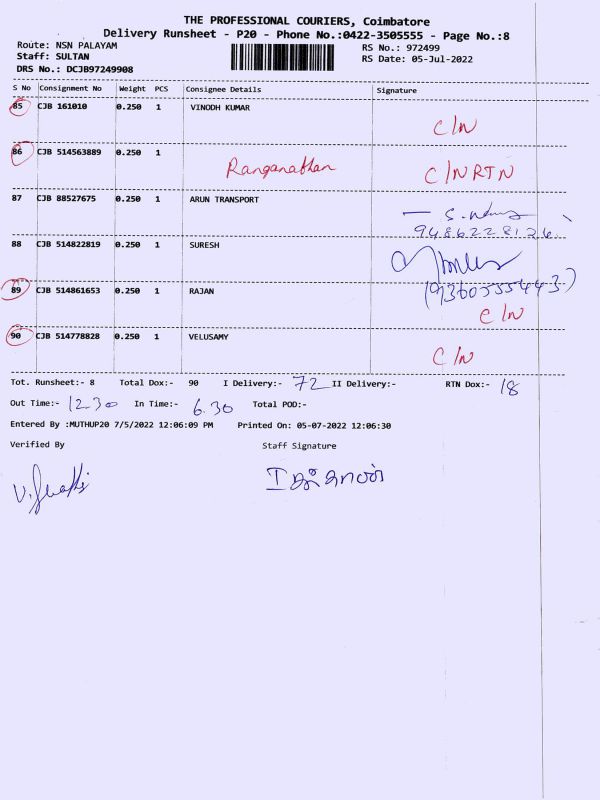 THE PROFESSIONAL COURIERS, Coimbatore
Delivery Runsheet - P20 - Phone No.:0422-3505555 - Page No.:8
Route: NSN PALAYAM RS No.: 972499
Staff: SULTAN RS Date: 05-Jul-2022
DRS No.: DCJB97249908
S No Consignment No Weight PCS Consignee Details Signature
85 CJB 161010 0.250 1 VINODH KUMAR
C/N
86 CJB 514563889 0.250 1
Ranganathan C/N RTN
87 CJB 88527675 0.250 1 ARUN TRANSPORT
9486228126
88 CJB 514822819 0.250 1 SURESH
89 CJB 514861653 0.250 1 RAJAN
(9360555443)
C/N
90 CJB 514778828 0.250 1 VELUSAMY
C/N
Tot. Runsheet:- 8 Total Dox:- 90 I Delivery:- 72 II Delivery:- RTN Dox:- 18
Out Time:- 12.30 In Time:- 6.30 Total POD:-
Entered By :MUTHUP20 7/5/2022 12:06:09 PM Printed On: 05-07-2022 12:06:30
Verified By Staff Signature